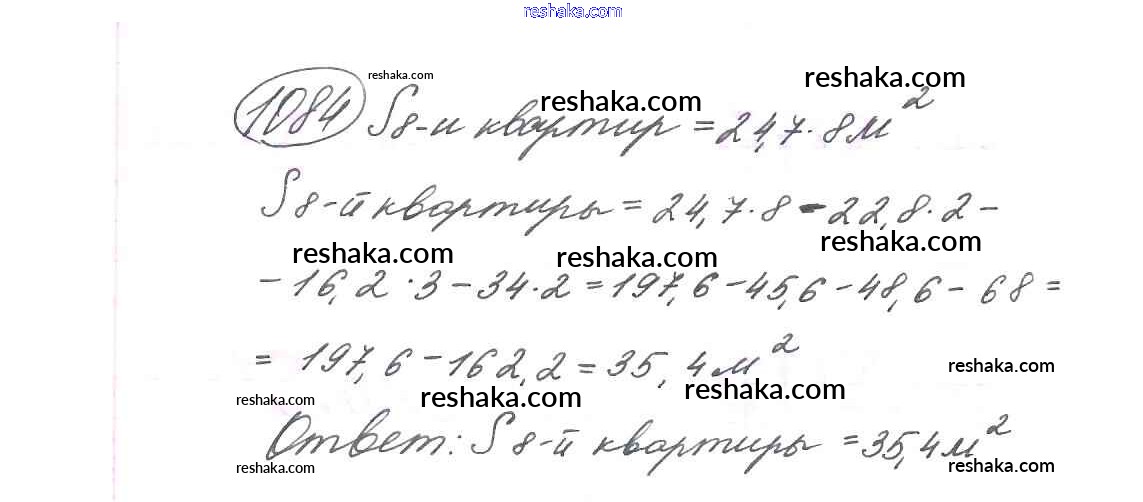 reshaka.com
1084 reshaka.com S 8-и квартир = 24,7 · 8 м²
reshaka.com reshaka.com
S 8-й квартиры = 24,7 · 8 - 22,8 · 2 -
reshaka.com reshaka.com reshaka.com
- 16,2 · 3 - 34 · 2 = 197,6 - 45,6 - 48,6 - 68 =
= 197,6 - 162,2 = 35,4 м²
reshaka.com reshaka.com reshaka.com reshaka.com
Ответ: S 8-й квартиры = 35,4 м²
reshaka.com reshaka.com